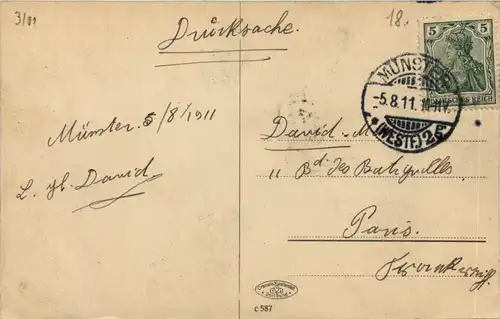 3/01
18.
Drucksache.
5 5
DEUTSCHES REICH
MÜNSTER
-5.8.11. 10-11V.
* (WESTF.) 2 c
Münster 5/8/1911
David
David - M
11 Bd des Batignolles
Paris.
Frankreich
c 587